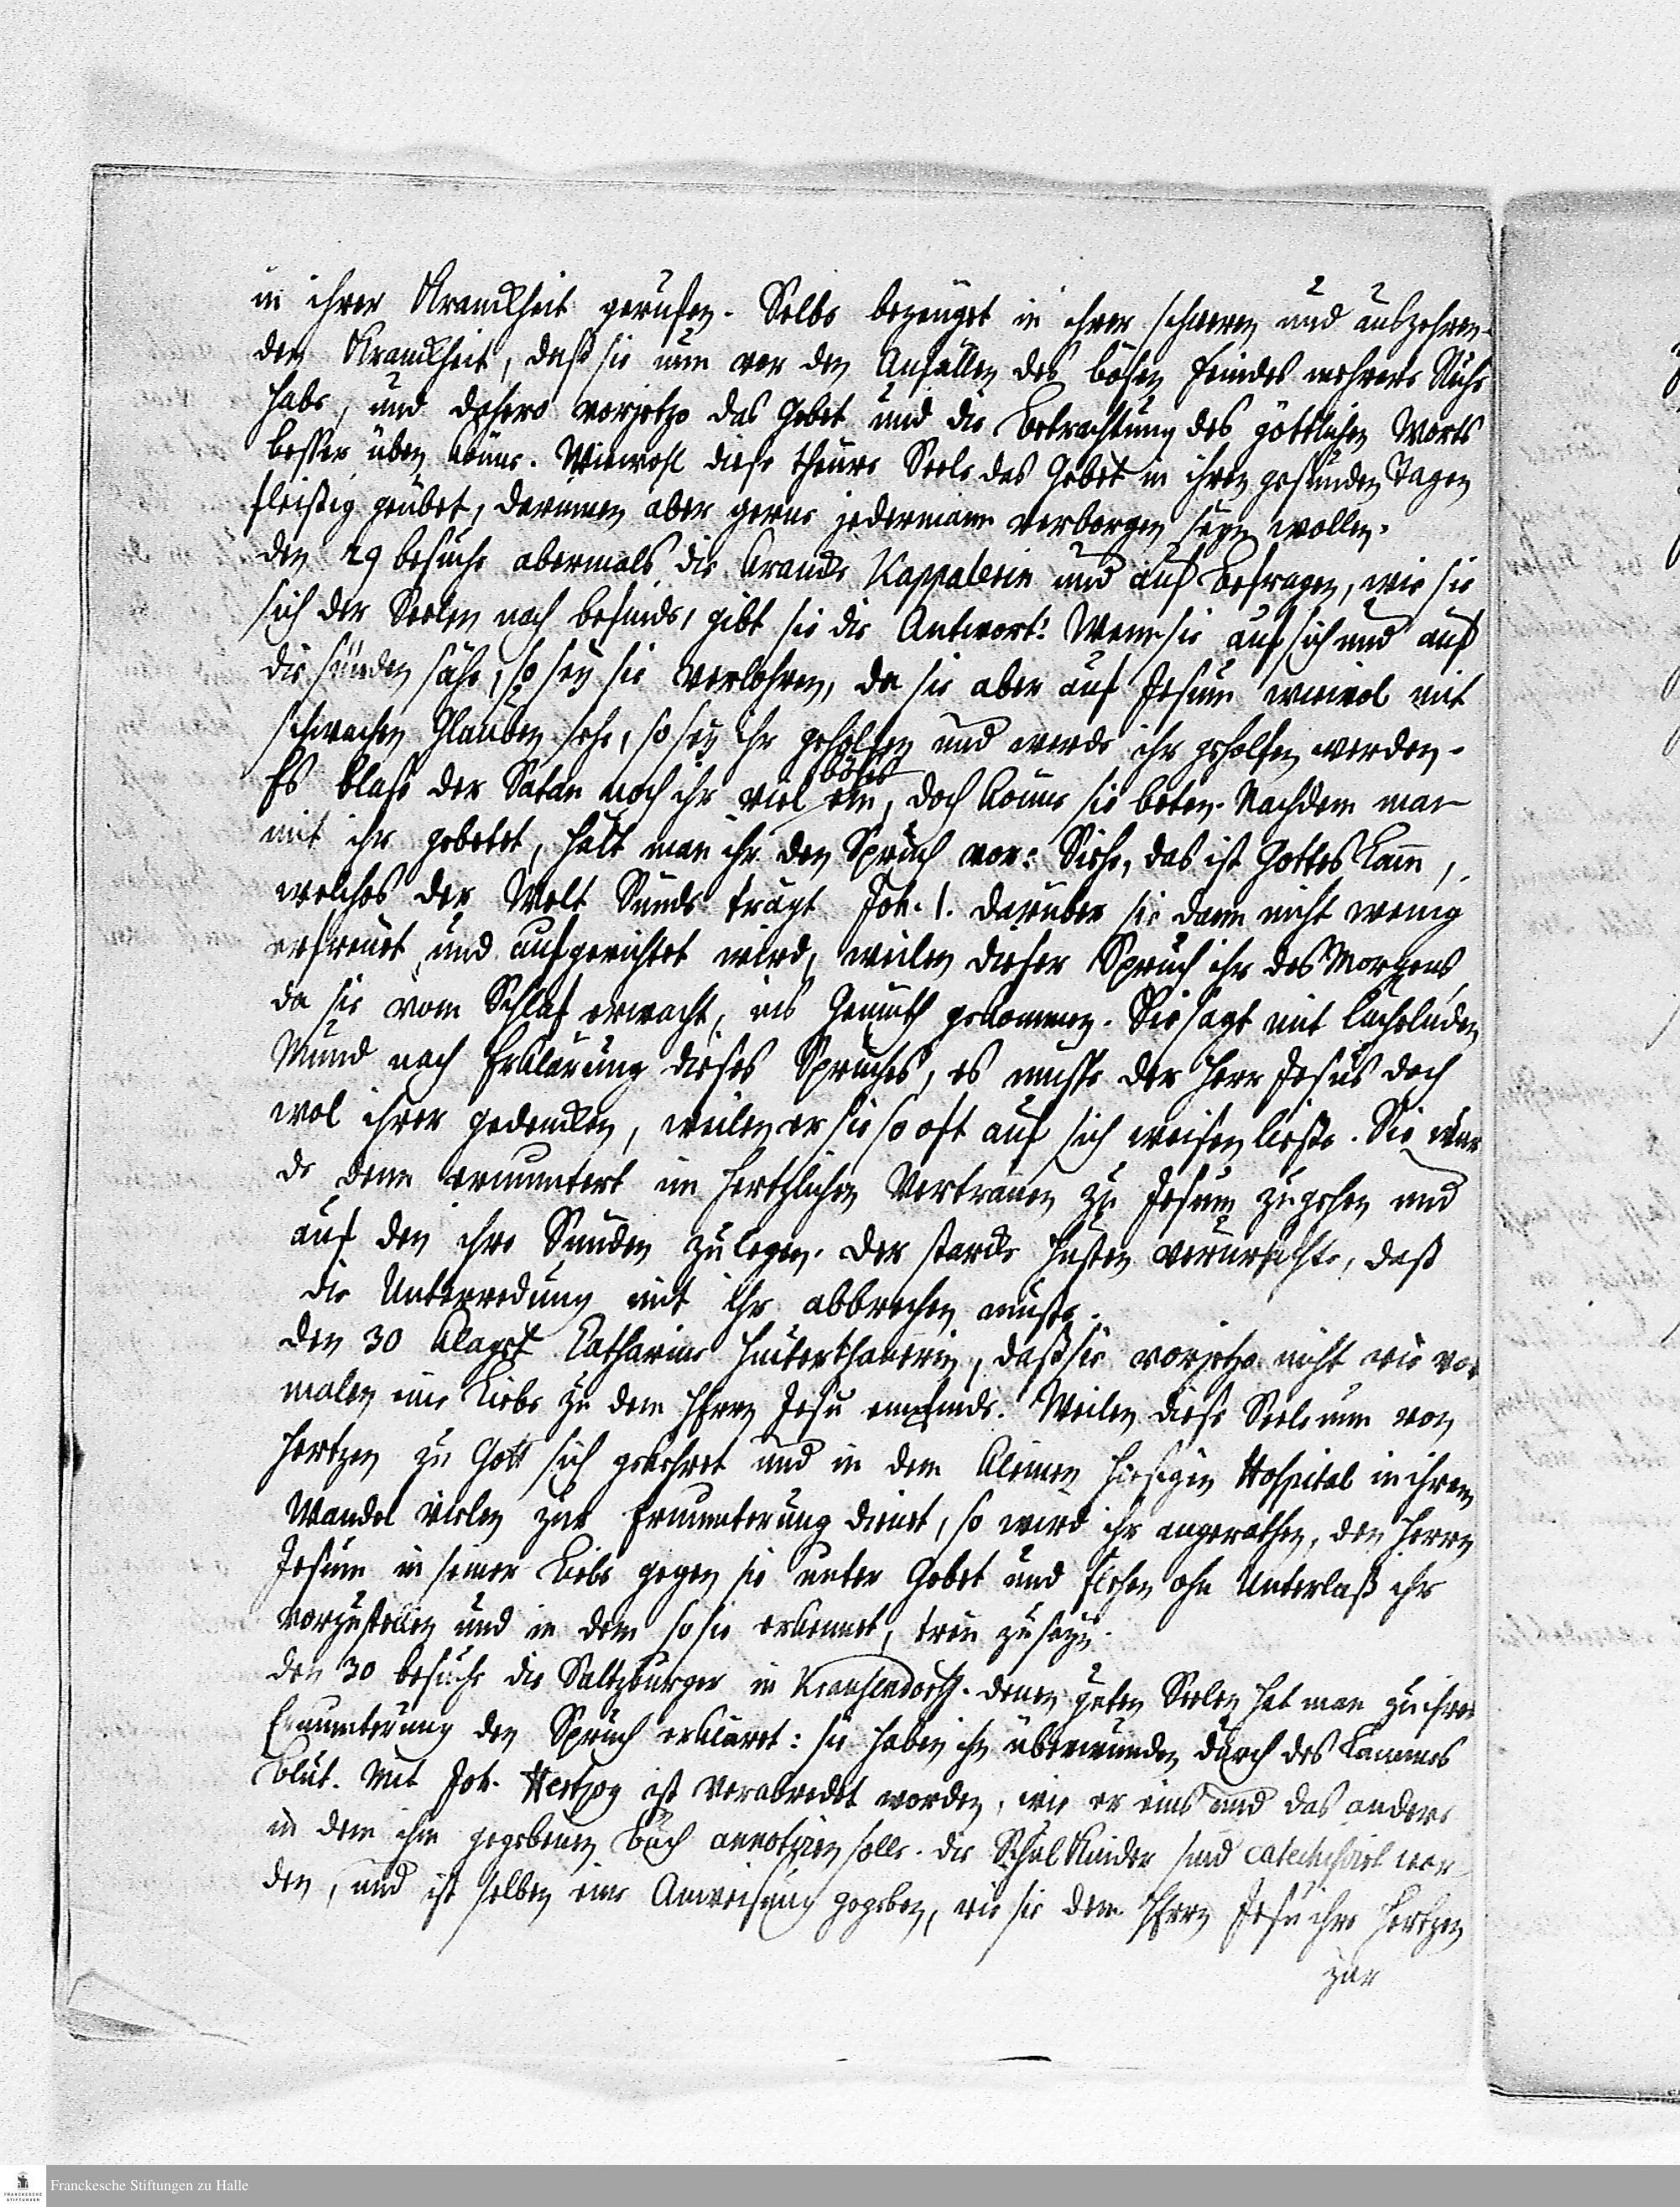 in ihrer Kranckheit gerufen. Selbe bezeuget in ihrer schweren und auszehren-
den Kranckheit, daß sie nun vor den Anfällen des bösen Feindes mehrere Ruhe
habe, und dahero vorjetzo das Gebet und die Betrachtung des göttlichen Worts
besser üben könne. Wiewohl diese theure Seele das Gebet in ihren gesunden Tagen
fleißig geübet, darinnen aber gerne jedermann verborgen seyn wollen.
den 29 besuche abermals die krancke Kappalerin und auf Befragen, wie sie
sich der Seelen nach befinde, gibt sie die Antwort: Wenn sie auf sich und auf
die sünden sähe, so sey sie verlohren, da sie aber auf Jesum wiewol mit
schwachen Glauben sehe, so sey ihr geholfen und werde ihr geholfen werden.
Es blase der Satan noch ihr viel böses ein, doch könne sie beten. Nachdem man
mit ihr gebetet, hält man ihr den Spruch vor: Siehe, das ist Gottes Lam,
welches der Welt Sünde trägt Joh. 1. darüber sie dann nicht wenig
erfreuet und aufgerichtet wird, weilen dieser Spruch ihr des Morgens,
da sie vom Schlaf erwacht, ins Gemüth gekommen. Sie sagt mit lächelnden
Mund nach Erklärung dieses Spruches, es müsse der Herr Jesus doch
wol ihrer gedencken, weilen er sie so oft auf sich weisen ließe. Sie wur
de denn ermuntert im hertzlichen Vertrauen zu Jesum zugehen und
auf den ihre Sünden zulegen. der starcke Husten verursachte, daß
die Unterredung mit ihr abbrechen muste.
den 30 klagt Catharina Hinterthanerin, daß sie vorjetzo nicht wie vor
malen eine Liebe zu dem HErrn Jesu empfinde. Weilen diese Seele nun von
Hertzen zu Gott sich gekehret und in dem kleinen hiesigen Hospital in ihrem
Wandel vielen zur Ermunterung dienet, so wird ihr angerathen, den Herrn
Jesum in seiner Liebe gegen sie unter Gebet und flehen ohn Unterlaß ihr
vorzustellen und in dem so sie erkennet, treu zu seyn.
den 30 besuche die Saltzburger in Kraußendorff. denen guten Seelen hat man zu ihrer
Ermunterung den Spruch erkläret: sie haben ihn überwunden durch des Lammes
Blut. Mit Joh. Hertzog ist verabredet worden, wie er eins und das andere
in dem ihm gegebenen Buch annotiren solle. die Schul Kinder sind catechisirt wor-
den, und ist selben eine Anweisung gegeben, wie sie dem HErrn Jesu ihre Hertzen
zur
Franckesche Stiftungen zu Halle